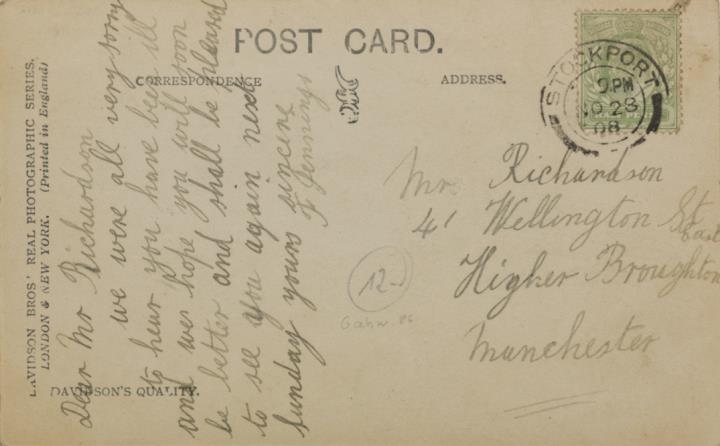 POST CARD.
CORRESPONDENCE
ADDRESS.
DAVIDSON BROS' REAL PHOTOGRAPHIC SERIES.
LONDON & NEW YORK. (Printed in England)
DAVIDSON'S QUALITY.
Dear Mr Richardson
we were all very sorry
to hear you have been ill
and wer hope you will soon
be better and shall be pleased
to see you again next
Sunday yours sincere
F Jennings
STOCKPORT
9 PM
NO 28
08
Mr. Richardson
41 Wellington St
East
Higher Broughton
Manchester
12-